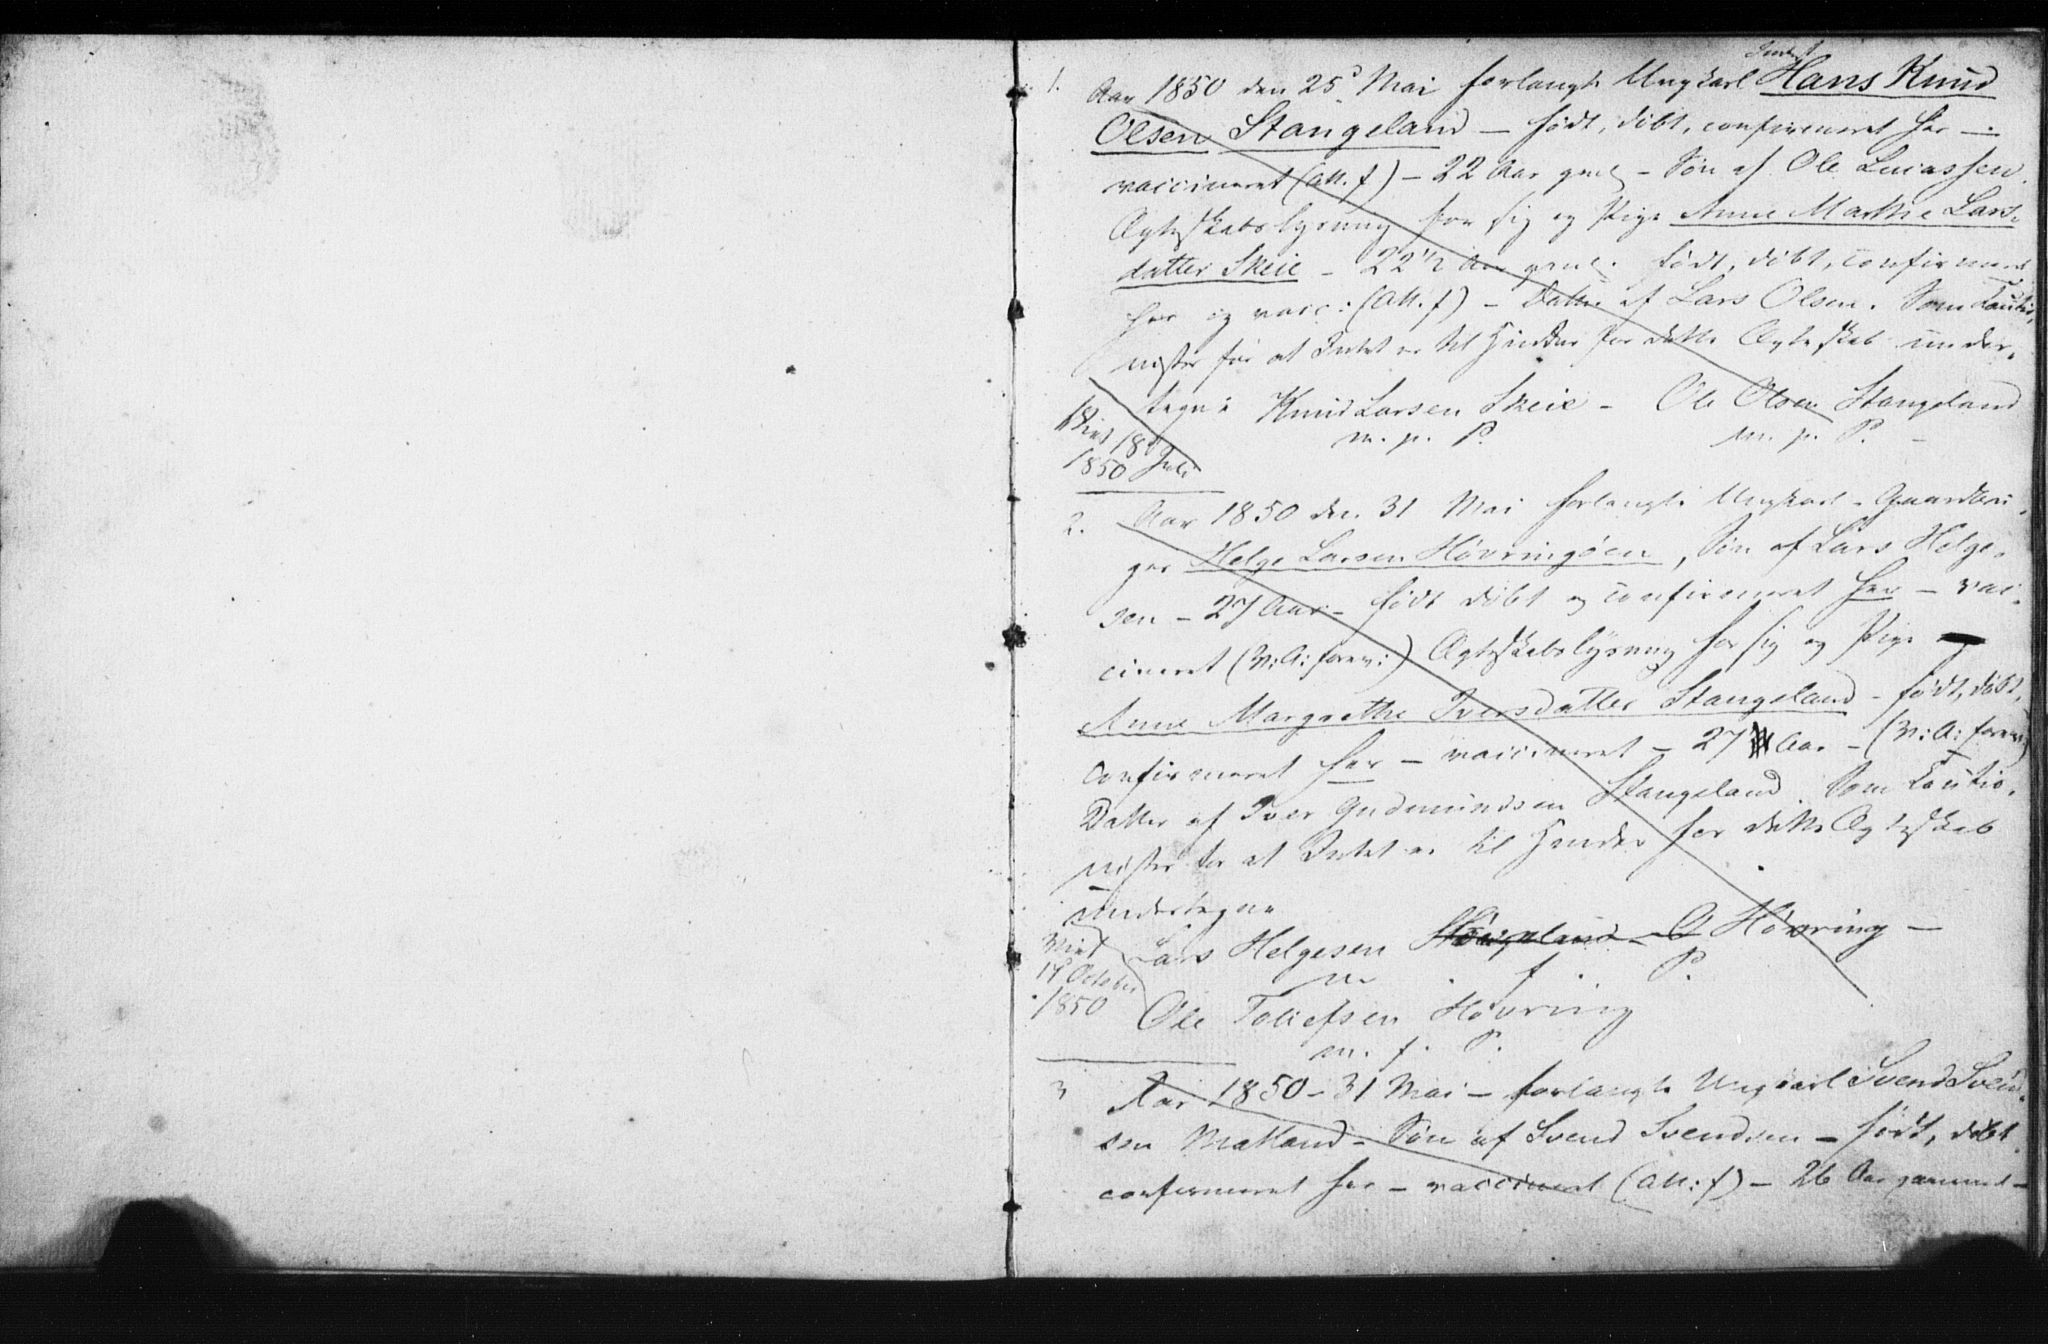 1. Aar 1850 den 25d Mai forlangte Ungkarl Hans Knud
Olsen Stangeland – født, døbt, confirmeret her –
vaccineret (Att. f) – 22 Aar gml – Søn af Ole Lucassen.
Ægteskabslysning for sig og Pige Anne Marthe Lars-
datter Skeie – 22 1/2 Aar gml. født, døbt, confirmeret
her og vacc: (Att. f) – Datter af Lars Olsen. Som Cautio-
nister for at Intet er til Hinder for dette Ægteskab under-
tegne Knud Larsen Skeie – Ole Olsen Stangeland
m. p. P. m. p. P. –
Viet
18 Juli
1850
2. Aar 1850 den 31 Mai forlangte Ungkarl – Gaardbru-
ger Helge Larsen Høvringøen, Søn af Lars Helge-
sen – 27 Aar – født døbt og confirmeret her – vac-
cineret (V: A: forev:) Ægteskabslysning for sig og Pige
Anne Margrethe Iversdatter Stangeland – født, døbt,
confirmeret her – vaccineret – 27 Aar – (V: A: forev:)
Datter af Iver Gudmundsen Stangeland. Som Cautio-
nister for at Intet er til Hinder for dette Ægteskab
undertegne
Lars Helgesen Høvring –
m. f. P.
Viet
17 October
1850
Ole Tollefsen Høvring
m. f. P.
3 Aar 1850 – 31 Mai – forlangte Ungkarl Svend Svend-
sen Matland – Søn af Svend Svendsen – født, døbt
confirmeret her – vaccineret (Att: f) – 26 Aar gammel –